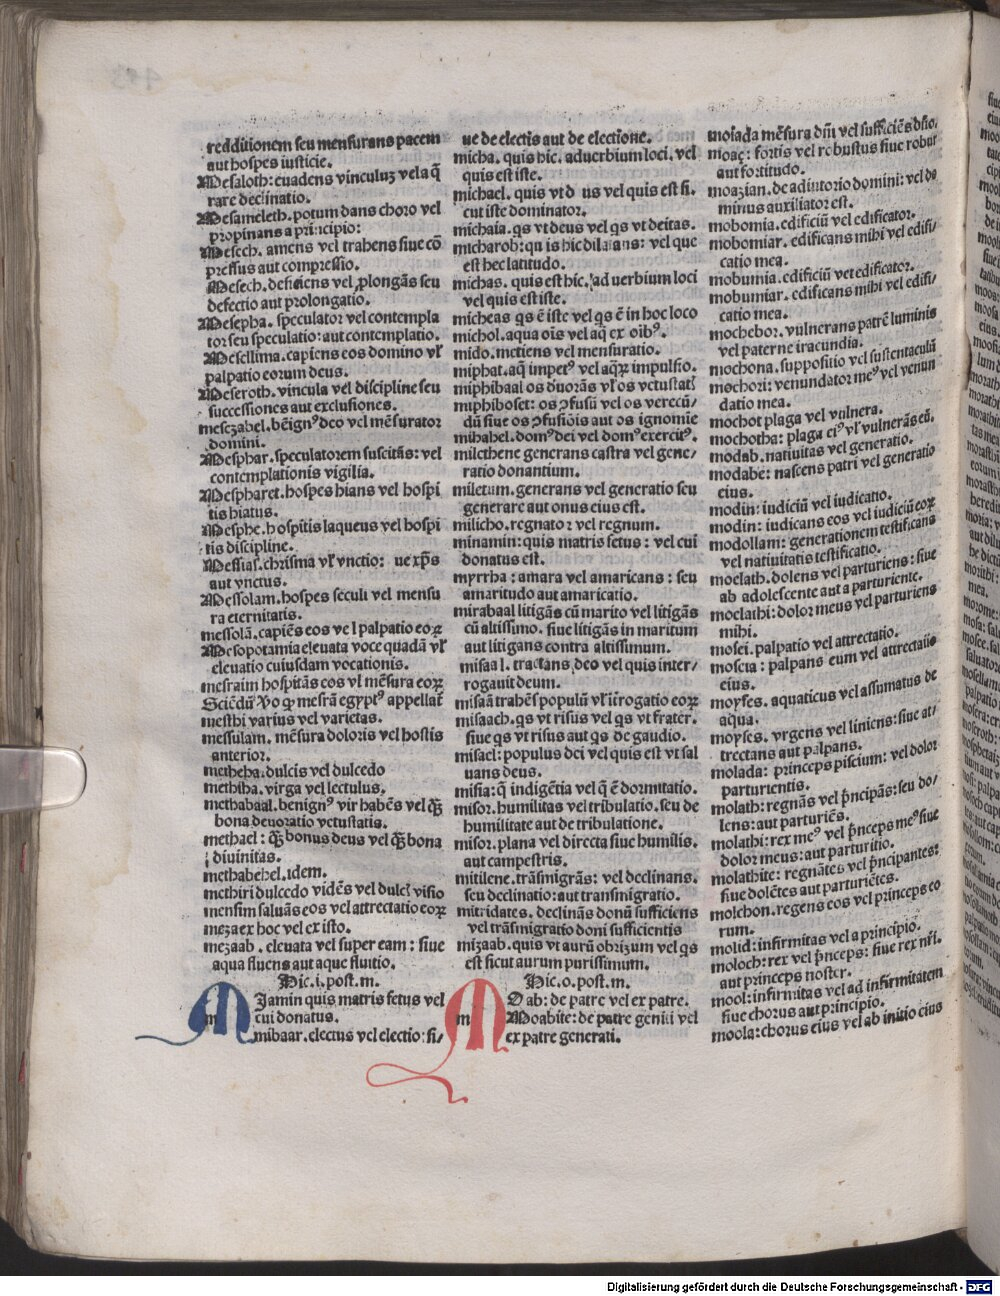 redditionem seu mensurans pacem
aut hospes iusticie.
Mesaloth: euadens vinculuʒ vel a q̄
rare declinatio.
Mesameleth. potum dans choro vel
propinans a principio:
Mesech. amens vel trahens siue cō
pressus aut compressio.
Mesech. deficiens vel ꝓlongās seu
defectio aut prolongatio.
Mesepha. speculator vel contempla
tor seu speculatio: aut contemplatio.
Mesellima. capiens eos domino vl'
palpatio eorum deus.
Meseroth. vincula vel discipline seu
successiones aut exclusiones.
mesezabel. bēignꝰ deo vel mēsurator
domini.
Mesphar. speculatorem suscitās: vel
contemplationis vigilia.
Mespharet. hospes hians vel hospi
tis hiatus.
Mesphe. hospitis laqueus vel hospi
tis discipline.
Messias. chrisma vl' vnctio: ue xp̄s
aut vnctus.
Messolam. hospes seculi vel mensu
ra eternitatis.
messolā. capiēs eos vel palpatio eoꝝ
Mesopotamia eleuata voce quadā vl'
eleuatio cuiusdam vocationis.
mesraim hospitās eos vl' mēsura eoꝝ
Sciēdū ꝟo ꝙ mesrā egyptꝰ appellat̄
mestbi varius vel varietas.
messulam. mēsura doloris vel hostis
anterior.
metheha. dulcis vel dulcedo
methiha. virga vel lectulus.
methabaal. benignꝰ vir habēs vel q̄ꝫ
bona deuoratio vetustatis.
methael: q̄ꝫ bonus deus vel q̄ꝫ bona
diuinitas.
methabehel. idem.
methiri dulcedo vidēs vel dulcꝭ visio
mensim saluās eos vel attrectatio eoꝝ
meza ex hoc vel ex isto.
mezaab. eleuata vel super eam: siue
aqua fluens aut aque fluitio.
Hic. i. post. m.
MIamin quis matris fetus vel
m cui donatus.
mibaar. electus vel electio: si/
ue de electis aut de electione.
micha. quis hic. aduerbium loci. vel
quis est iste.
michael. quis vt d us vel quis est si.
cut iste dominator.
michaia. qs vt deus vel qs vt deitas.
micharob: quis hic dilatans: vel que
est hec latitudo.
michas. quis est hic. aduerbium loci
vel quis est iste.
micheas qs ē iste vel qs ē in hoc loco
michol. aqua oīs vel aq̄ ex oībꝰ.
mido. metiens vel mensuratio.
miphat. aq̄ impetꝰ vel aqꝝ impulsio.
miphibaal os duorās vl' os vetustatꝭ
miphiboset: os ꝯfusū vel os verecū/
dū siue os ꝯfusiōis aut os ignomīe
mihabel. domꝰ dei vel domꝰ exercitꝰ.
milethene generans castra vel gene/
ratio donantium.
miletum. generans vel generatio seu
generare aut onus eius est.
milicho. regnator vel regnum.
minamin: quis matris fetus: vel cui
donatus est.
myrrha: amara vel amaricans: seu
amaritudo aut amaricatio.
mirabaal litigās cū marito vel litigās
cū altissimo. siue litigās in maritum
aut litigans contra altissimum.
misaal. tractans deo vel quis inter/
rogauit deum.
misaā trahēs populū vl' īterogatio eoꝝ
misaach. qs vt risus vel qs vt frater.
siue qs vt risus aut qs de gaudio.
misael: populus dei vel quis est vt sal
uans deus.
misia: q̄ indigētia vel q̄ ē dormitatio.
misor. humilitas vel tribulatio. seu de
humilitate aut de tribulatione.
misor. plana vel directa siue humilis.
aut campestris.
mitilene. trāsmigrās: vel declinans.
seu declinatio: aut transmigratio.
mitridates. declinās donū sufficiens
vel trāsmigratio doni sufficientis
mizaab. quis vt aurū obrizum vel qs
est sicut aurum purissimum.
Hic. o. post. m.
MOab: de patre vel ex patre.
m Moabite: de patre geniti vel
ex patre generati.
moiada mēsura dn̄i vel sufficiēs dn̄o.
moaç: fortis vel robustus siue robur
aut fortitudo.
moazian. de adiutorio domini: vel de
minus auxiliator est.
mobomia. edificiū vel edificator.
mobomiar. edificans mihi vel edifi/
catio mea.
mobumia. edificiū vel edificator.
mobumiar. edificans mihi vel edifi/
catio mea.
mochebor. vulnerans patrē luminis
vel paterne iracundia.
mochona. suppositio vel sustentaculū
mochori: venundator meꝰ vel venun
datio mea.
mochot plaga vel vulnera.
mochotha: plaga eiꝰ vl' vulnerās eū.
modab. natiuitas vel generatio.
modabe: nascens patri vel generatio
eius.
modin: iudiciū vel iudicatio.
modin: iudicans eos vel iudiciū eoꝝ
modollam: generationem testificans
vel natiuitatis testificatio.
moelath. dolens vel parturiens: siue
ab adolescente aut a parturiente.
moelathi: dolor meus vel parturiens
mihi.
mosei. palpatio vel attrectatio.
moseia: palpans eum vel attrectatio
eius.
moyses. aquaticus vel assumatus de
aqua.
moyses. vrgens vel liniens: siue at/
trectans aut palpans.
molada: princeps piscium: vel dolor
parturientis.
molath: regnās vel p̄ncipās: seu do/
lens: aut parturiēs.
molathi: rex meꝰ vel p̄nceps meꝰ siue
dolor meus: aut parturitio.
molathite: regnātes vel p̄ncipantes:
siue dolētes aut parturiētes.
molchon. regens eos vel princeps eo
rum.
molid: infirmitas vel a principio.
moloch: rex vel p̄nceps: siue rex nr̄i.
aut princeps noster.
mool: infirmitas vel ad infirmitatem
siue chorus aut principio.
moola: chorus eius vel ab initio eius
Digitalisierung gefördert durch die Deutsche Forschungsgemeinschaft - DFG